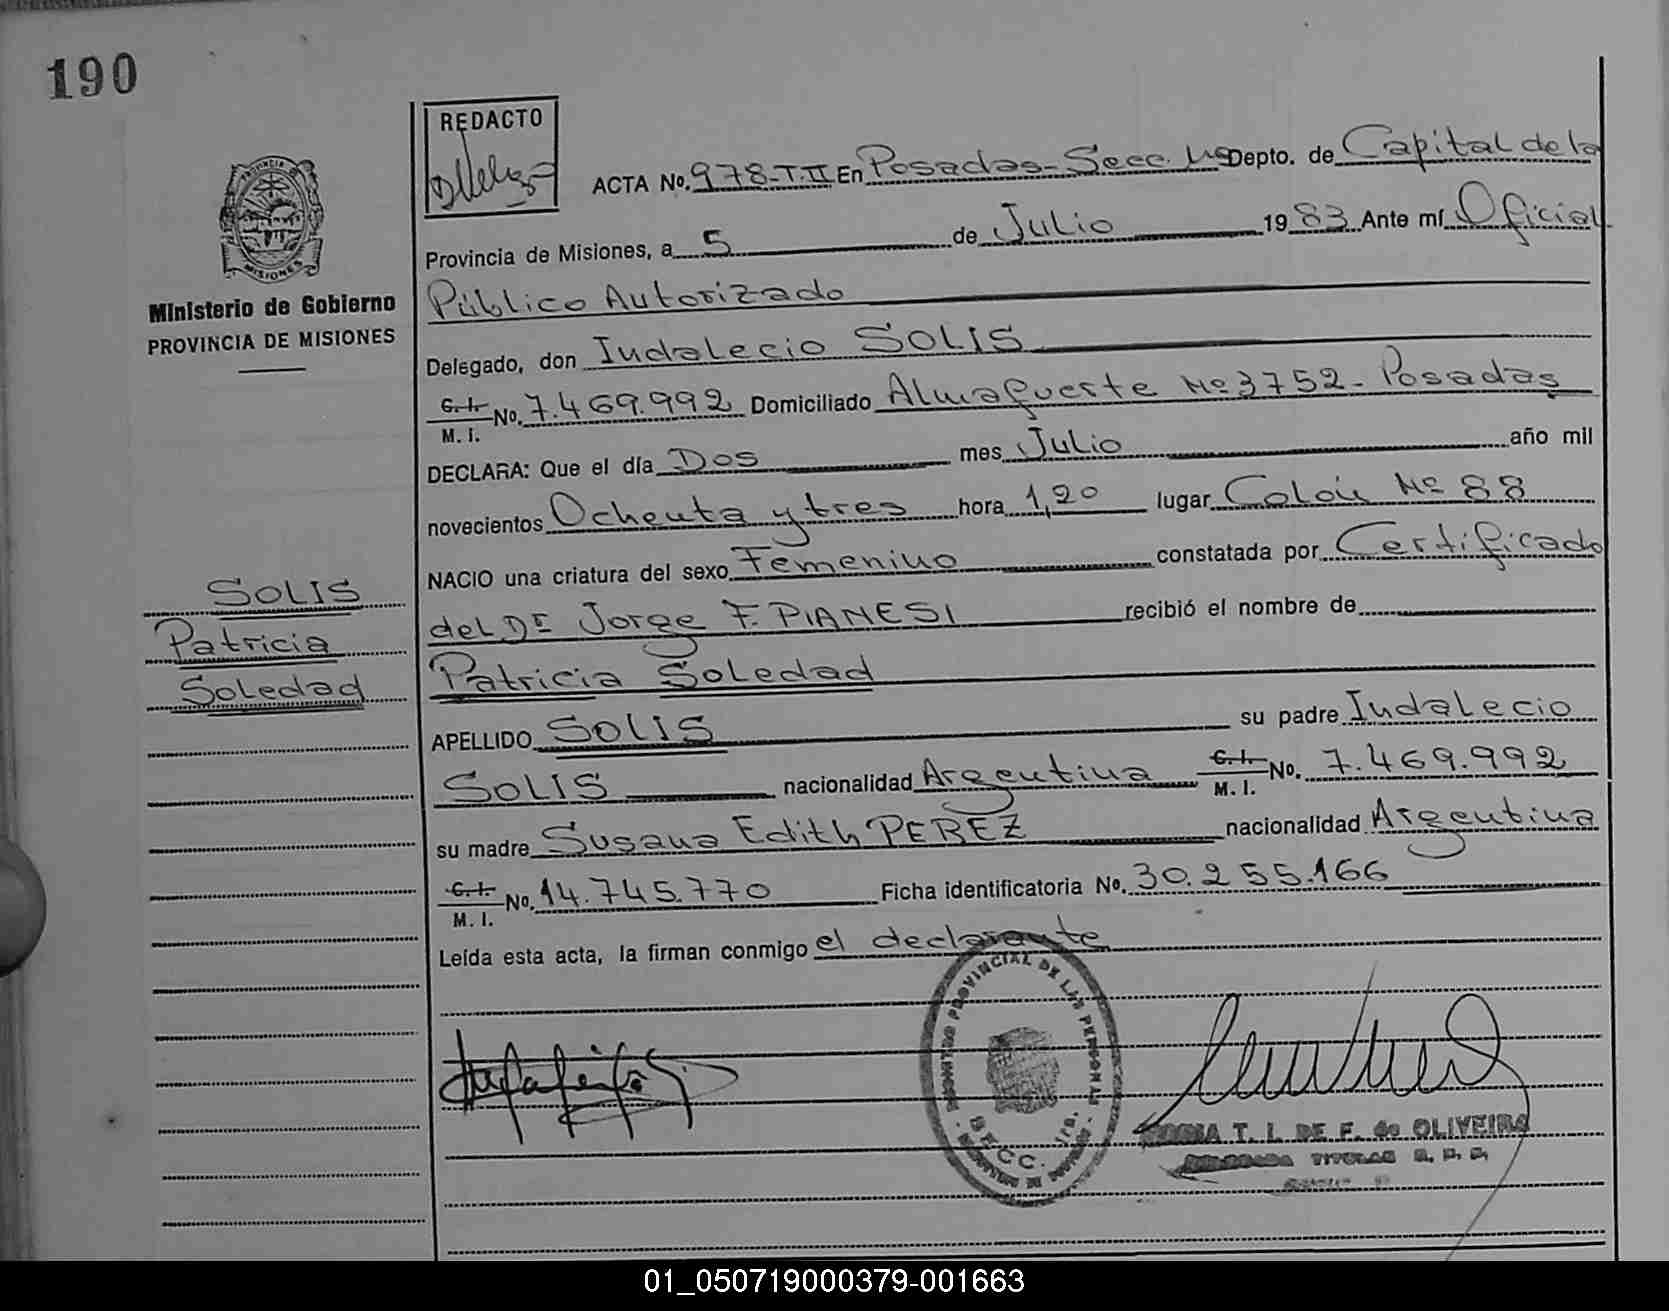 190
REDACTO
PROVINCIA
MISIONES
Ministerio de Gobierno
PROVINCIA DE MISIONES
ACTA No. 978-T.II En Posadas-Secc. 1ra Depto. de Capital de la
Provincia de Misiones, a 5 de Julio 1983 Ante mí Oficial
Público Autorizado
Delegado, don Indalecio SOLIS
C.I. M.I. No. 7.469.992 Domiciliado Almafuerte Nº 3752- Posadas
DECLARA: Que el día Dos mes Julio año mil
novecientos Ochenta y tres hora 1,20 lugar Colón Nº 88
NACIO una criatura del sexo Femenino constatada por Certificado
del Dr Jorge F. PIANESI recibió el nombre de
Patricia Soledad
APELLIDO SOLIS su padre Indalecio
SOLIS nacionalidad Argentina C.I. M.I. No. 7.469.992
su madre Susana Edith PEREZ nacionalidad Argentina
C.I. M.I. No. 14.745.770 Ficha identificatoria No. 30.255.166
Leída esta acta, la firman conmigo el declarante
SOLIS
Patricia
Soledad
PROVINCIAL DE LAS PERSONAS
SECC. 1ra.
T. I. DE F. de OLIVEIRA
TITULAR R. P. P.
01_050719000379-001663